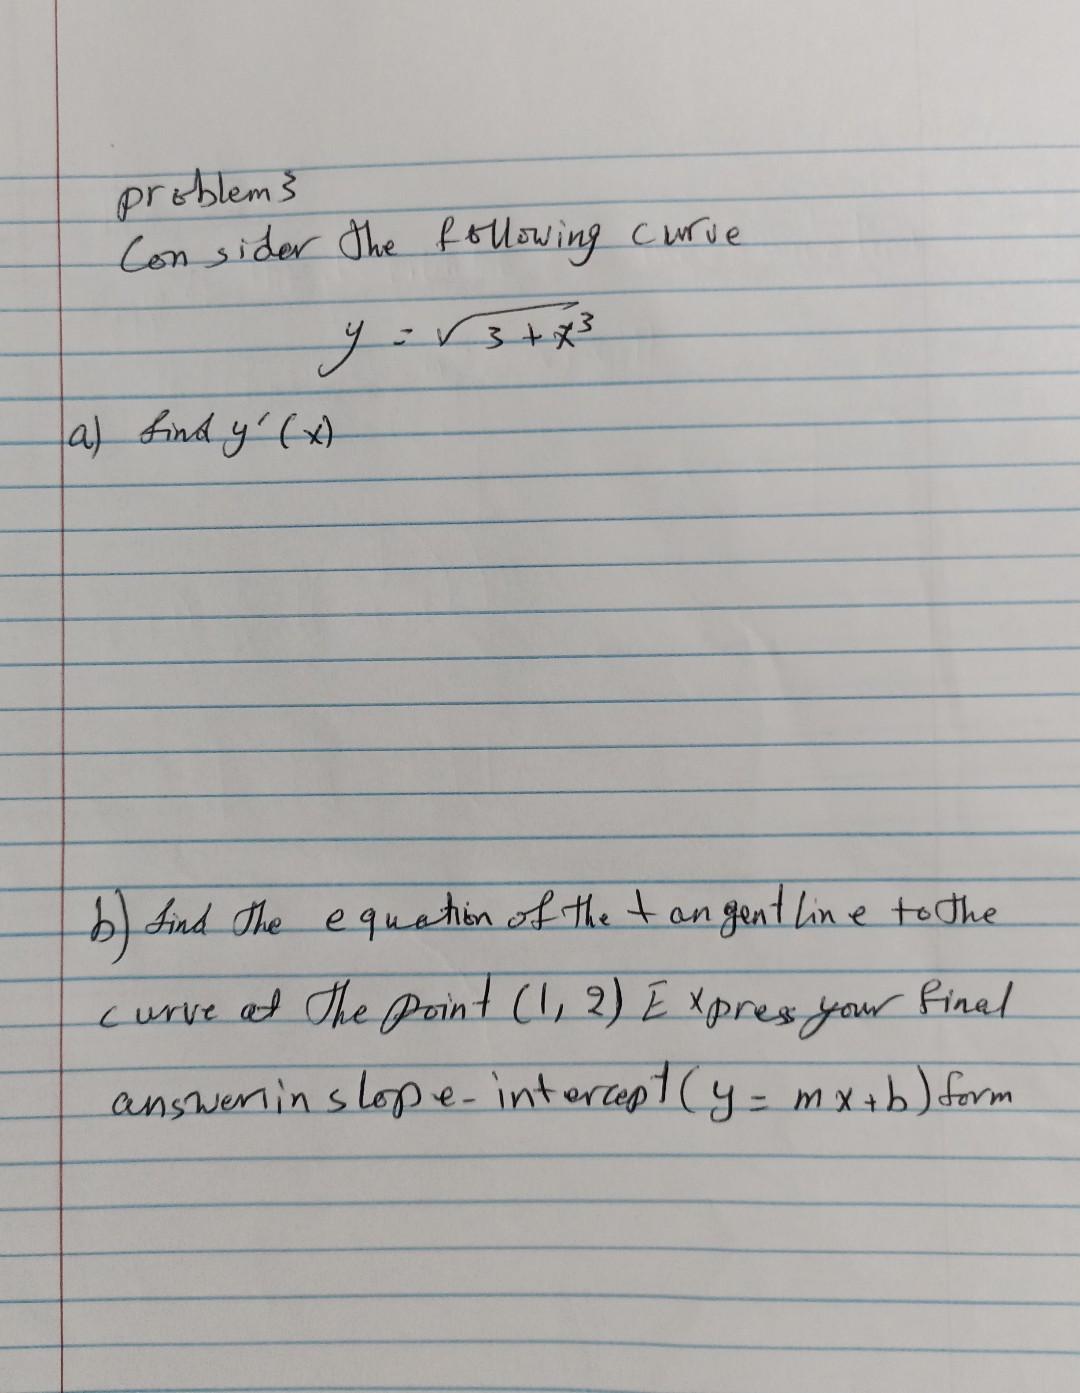 problem 3
Consider the following curve
y = √3 + x³
a) find y'(x)
b) find the equation of the tangent line to the
curve at the point (1, 2) Express your final
answer in slope-intercept (y = mx + b) form